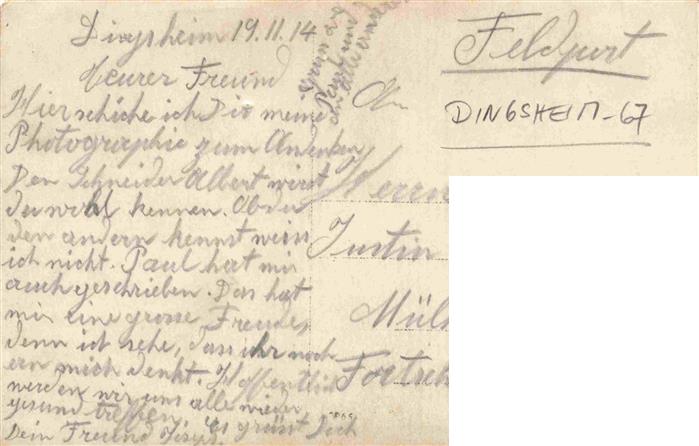 Dingsheim 19.11.14
Teurer Freund
Hier schicke ich Dir meine
Photographie zum Andenken
Den Schneider Albert wirst
du wohl kennen. Ob du
den andern kennst weiss
ich nicht. Paul hat mir
auch geschrieben. Das hat
mir eine grosse Freude,
denn ich sehe, dass ihr noch
an mich denkt. Hoffentlich
werden wir uns alle wieder
gesund treffen. Es grüsst Dich
Dein Freund
Gruss
Paul und
an
Feldpost
DINGSHEIM-67
An
Herrn
Justin
Mül
Fortsch